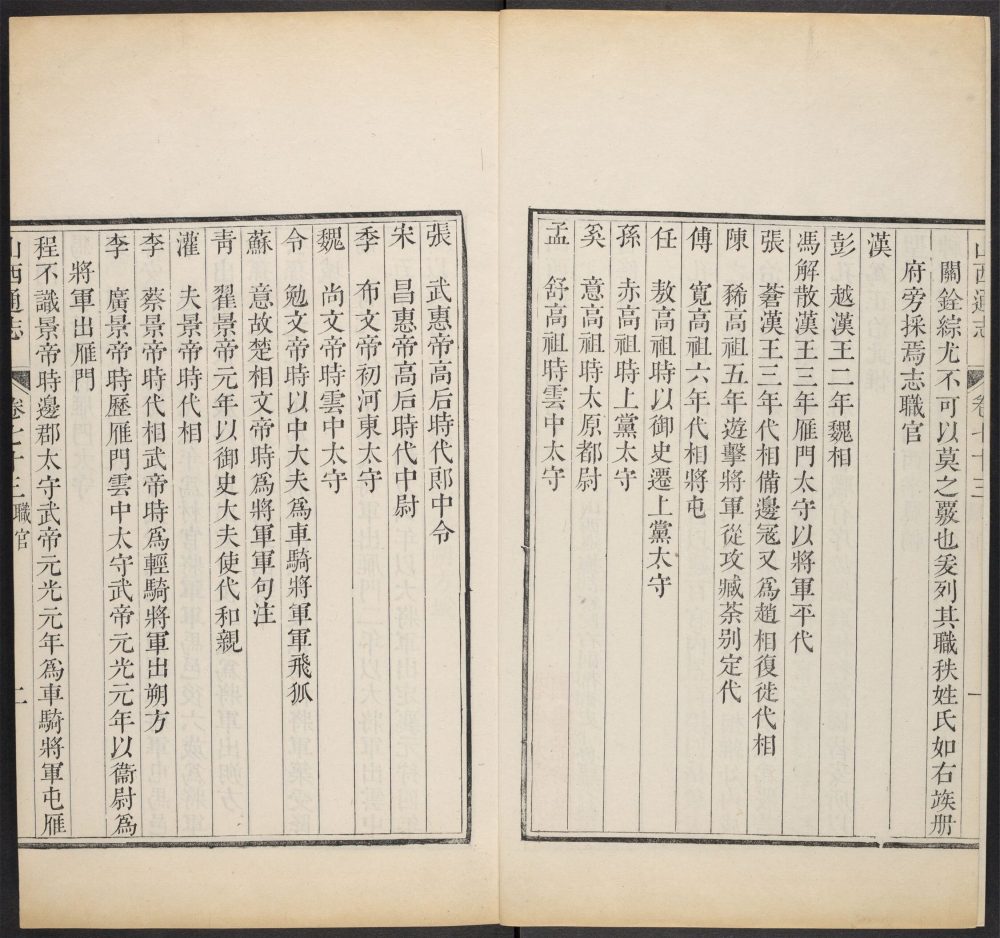 山西通志 卷七十三 一
關銓綜尤不可以莫之覈也爰列其職秩姓氏如右蔟册
府旁採焉志職官
漢
彭 越漢王二年魏相
馮解散漢王三年雁門太守以將軍平代
張 蒼漢王三年代相備邊寇又爲趙相復徙代相
陳 豨高祖五年遊擊將軍從攻臧荼别定代
傅 寛高祖六年代相將屯
任 敖高祖時以御史遷上黨太守
孫 赤高祖時上黨太守
奚 意高祖時太原都尉
孟 舒高祖時雲中太守
張 武惠帝高后時代郎中令
宋 昌惠帝高后時代中尉
季 布文帝初河東太守
魏 尚文帝時雲中太守
令 勉文帝時以中大夫爲車騎將軍軍飛狐
蘇 意故楚相文帝時爲將軍軍句注
靑 翟景帝元年以御史大夫使代和親
灌 夫景帝時代相
李 蔡景帝時代相武帝時爲輕騎將軍出朔方
李 廣景帝時歷雁門雲中太守武帝元光元年以衞尉爲
將軍出雁門
程不識景帝時邊郡太守武帝元光元年爲車騎將軍屯雁
山西通志 卷七十三 職官 二